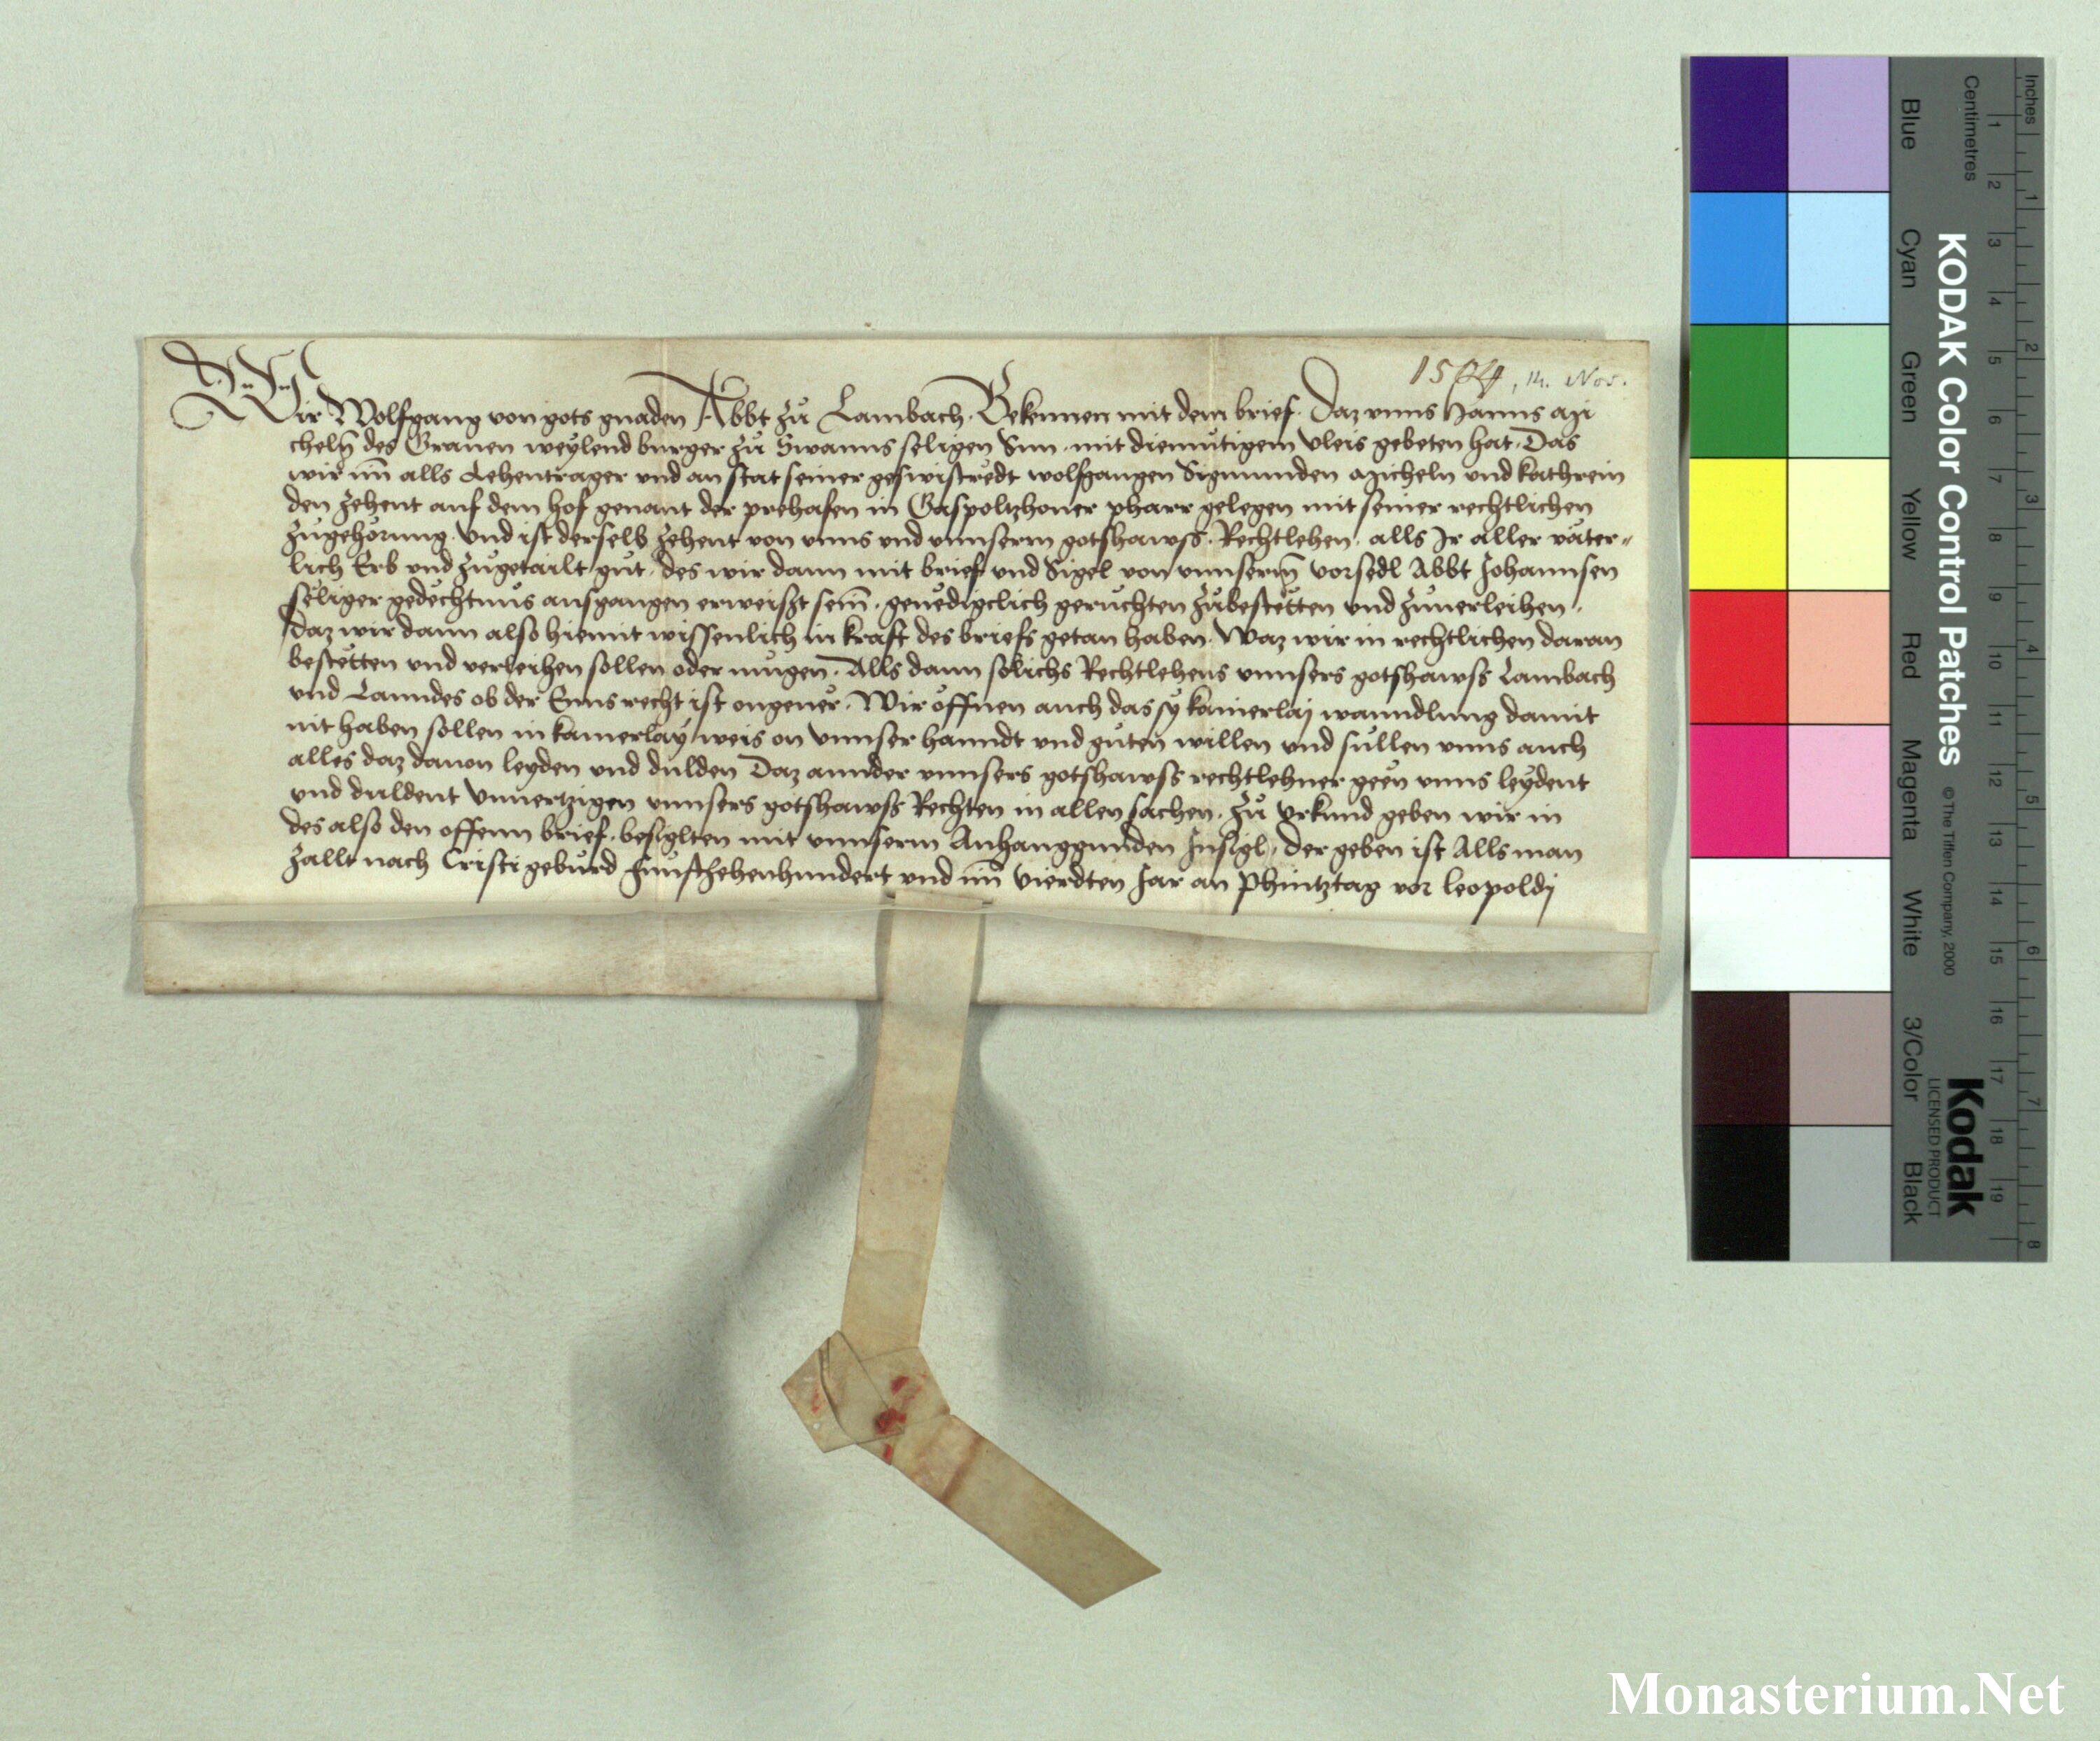 1504, 14. Nov.
Wir Wolfgang von gots gnaden Abbt zů Lambach. Bekennen mit dem brief. Daz vnns Hanns Mi
cheln des Grauen weylend burger zů Swanns seligen Sun. mit diemůtigem vleis gebeten hat. Das
wir im alls Lehentrager vnd an stat seiner geswistredt wolfgangen Sigmunden Micheln vnd kathrein
den zehent auf dem hof genant der prehafen in Gaspoltzhouer pharr gelegen mit seiner rechtlichen
zůgehorung. vnd ist derselb zehent von vnns vnd vnnserm gotshawss. Rechtlehen. alls Ir aller väter=
lich Erb vnd zůgetailt gůt. des wir dann mit brief vnd Sigel von vnnserm vorfedl Abbt Johannsen
seliger gedechtnus ausgangen erweiszt sein. genedigclich geruchten zůbestetten vnd zůuerleihen.
Daz wir dann also hiemit wissenlich in kraft des briefs getan haben. Waz wir in rechtlichen daran
bestetten vnd verleihen sollen oder mugen. Alls dann solichs Rechtlehens vnnsers gotshawss Lambach
vnd Lanndes ob der Enns recht ist ongeuer. Wir offnen auch das sy kainerlaj wanndlung damit
nit haben sollen in kainerlay weis on vnnser hanndt vnd guten willen vnd sullen vnns auch
alles daz dauon leyden vnd dulden Daz annder vnnsers gotshawss rechtlehner geen vnns leydent
vnd duldent vnuertzigen vnnsers gotshawss Rechten in allen sachen. Zů vrkund geben wir in
des also den offenn brief. besiglten mit vnnserm Anhanggunden Insigl. der geben ist Alls man
zallt nach Cristi geburd Funftzehenhundert vnd im vierdten Jar an Phintztag vor leopoldj
KODAK Color Control Patches
© The Tiffen Company, 2000
Kodak
LICENSED PRODUCT
Inches
Centimetres
1 2 3 4 5 6 7 8 9 10 11 12 13 14 15 16 17 18 19
1 2 3 4 5 6 7 8
Blue
Cyan
Green
Yellow
Red
Magenta
White
3/Color
Black
Monasterium.Net